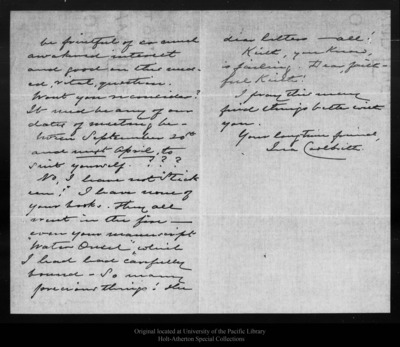 be fruitful of so much
awakened interest
and good in this
vital question.
Won't you reconsider?
It need be any of our
dates of meeting be-
tween September 20th
and next April, to
suit yourself. ???
No, I have not "Stick
een"! I have none of
your books. They all
went in the fire —
even your manuscript
"Water Ousel", which
I had had carefully
bound - So many
precious things! The
dear letters — all!
Keith, you know,
is failing. Dear, faith-
ful Keith!
I pray this may
find things better with
you.
Your longtime friend,
Ina Coolbrith.
Original located at University of the Pacific Library
Holt-Atherton Special Collections